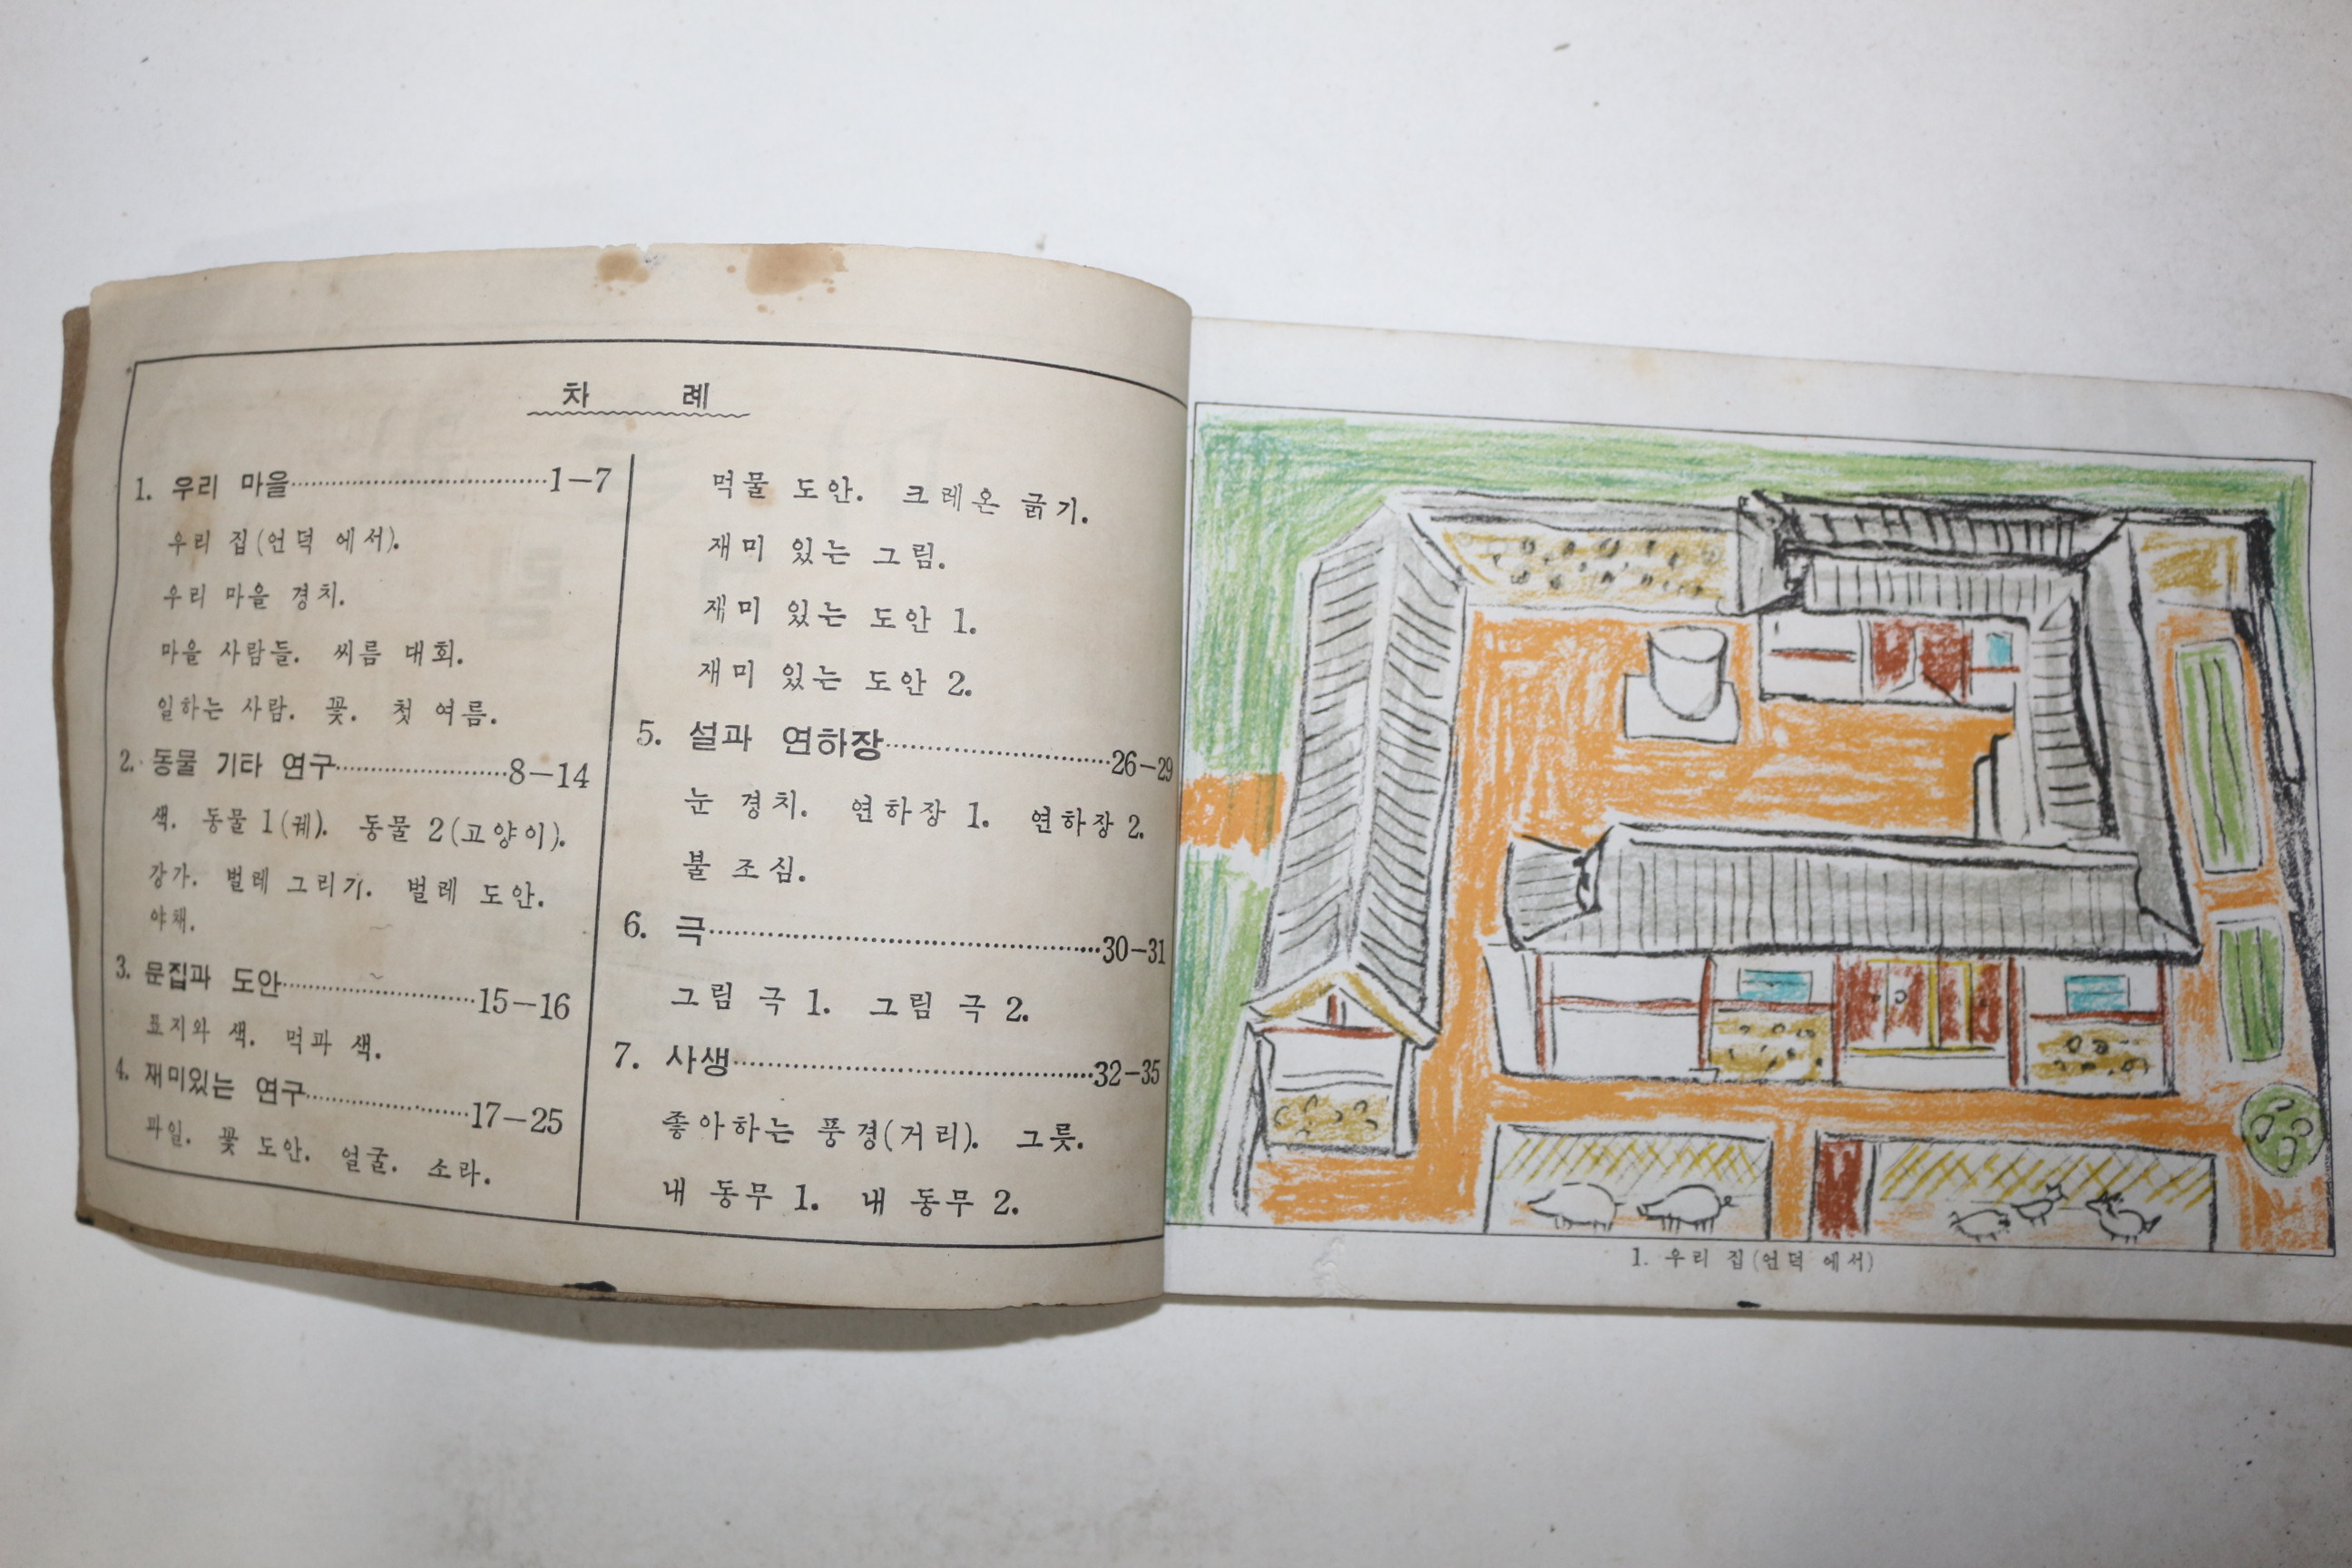 차 례
1. 우리 마을……………………………1—7
우리 집(언덕 에서).
우리 마을 경치.
마을 사람들. 씨름 대회.
일하는 사람. 꽃. 첫 여름.
2. 동물 기타 연구…………………8—14
색. 동물 1(궤). 동물 2(고양이).
강가. 벌레 그리기. 벌레 도안.
야채.
3. 문집과 도안……………………15—16
표지와 색. 먹과 색.
4. 재미있는 연구…………………17—25
과일. 꽃 도안. 얼굴. 소라.
먹물 도안. 크레온 긁기.
재미 있는 그림.
재미 있는 도안 1.
재미 있는 도안 2.
5. 설과 연하장……………………26—29
눈 경치. 연하장 1. 연하장 2.
불 조심.
6. 극………………………………………30—31
그림 극 1. 그림 극 2.
7. 사생……………………………………32—35
좋아하는 풍경(거리). 그릇.
내 동무 1. 내 동무 2.
1. 우리 집(언덕 에서)